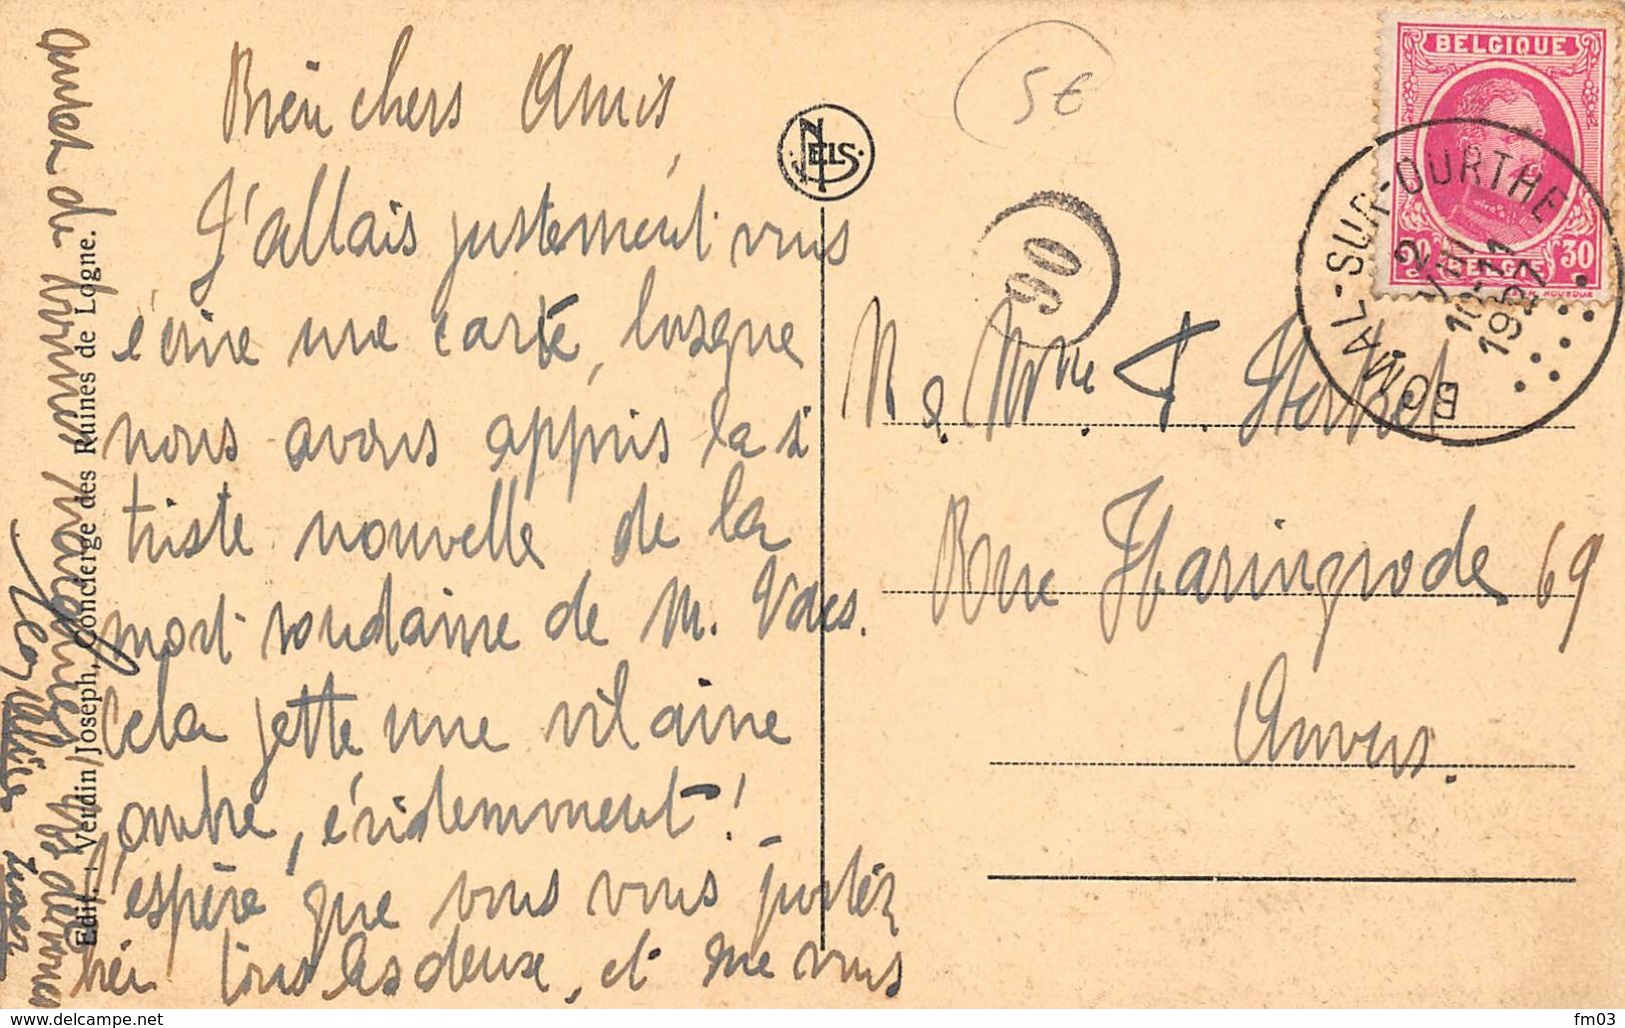 Bien chers Amis,
J'allais justement vous
écrire une carte, lorsque
nous avons appris la si
triste nouvelle de la
mort soudaine de M. Vaes.
Cela jette une vilaine
ombre, évidemment!
J'espère que vous vous portez
bien tous les deux, et me vous
de nous
Edit. : Verdin Joseph, Concierge des Ruines de Logne.
NELS
5€
90
BELGIQUE
30 30
BELGIE
BOMAL-SUR-OURTHE
2
VIII
10-11
1927
M & Mme F.
Rue Haringrode 69
Anvers.
www.delcampe.net
fm03